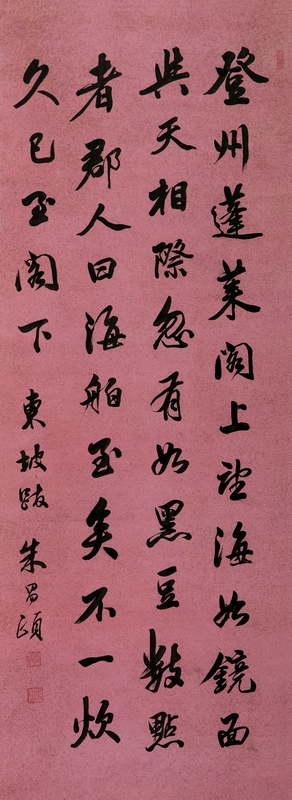 登州蓬莱阁上望海如鏡面
與天相際忽有如黑豆數點
者郡人曰海舶至矣不一炊
久已至阁下
東坡跋 朱昌頤